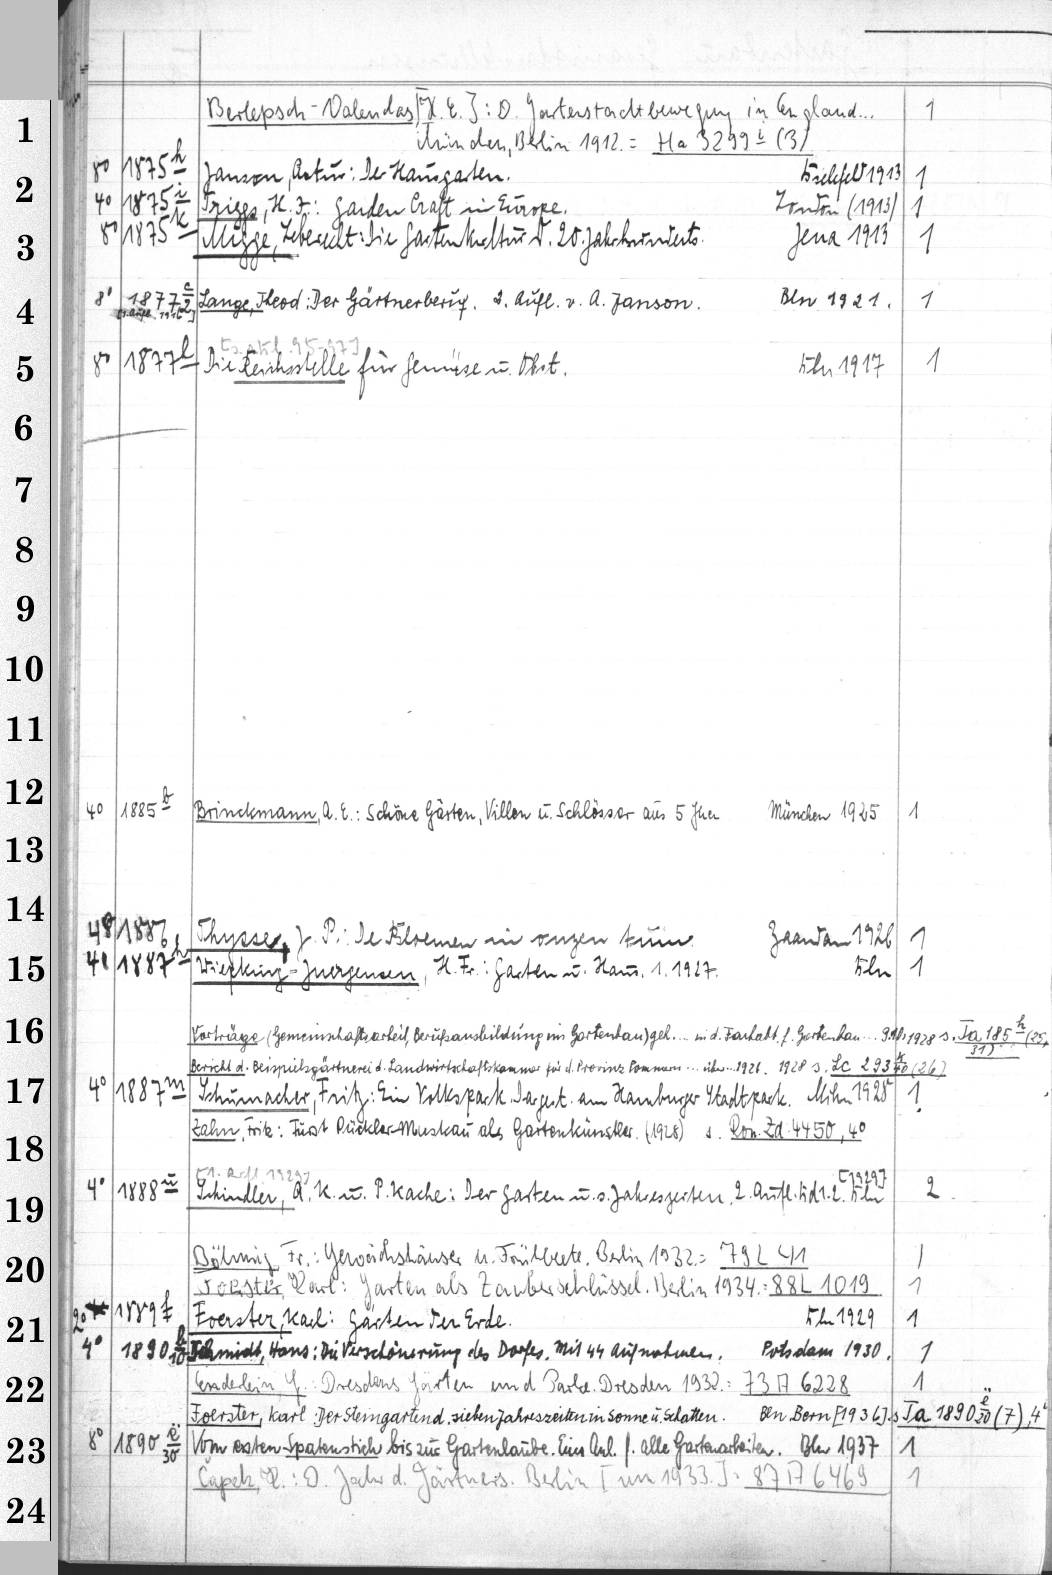 1 Berlepsch-Valendas [H. E.]: D. Gartenstadtbewegung in England... 1
München, Berlin 1912. = Ha 3299 (3)
2 8° 1875 h Janson, Artur: Der Hausgarten. Bielefeld 1913 1
4° 1875 i Triggs, H. J.: Garden Craft in Europe. London (1913) 1
3 8° 1875 k Migge, Leberecht: Die Gartenkultur d. 20. Jahrhunderts. Jena 1913 1
4 8° 1877 Lange, Theod: Der Gärtnerberuf. 2. Aufl. v. A. Janson. Bln 1921. 1
[1. Aufl. 1916]
5 8° 1877 l Die Reichsstelle für Gemüse u. Obst. Bln 1917 1
6
7
8
9
10
11
12 4° 1885 b Brinckmann, A. E.: Schöne Gärten, Villen u. Schlösser aus 5 Jhen München 1925 1
13
14 4° 1886 Thysse, J. P.: De Bloemen in onzen tuin. Zaandam 1926 1
15 4° 1887 h Wiepking-Juergensen, H. Fr.: Garten u. Haus. 1. 1927. Bln 1
16 Vorträge (Gemeinschaftsarbeit, Berufsausbildung im Gartenbau) geh... in d. Fachabt. f. Gartenbau... 1928 s. Ta 185 h (25,
31)
Bericht d. Beispielsgärtnerei d. Landwirtschaftskammer für d. Provinz Pommern... über... 1926. 1928 s. Lc 293 (26)
17 4° 1887 m Schumacher, Fritz: Ein Volkspark. Dargest. am Hamburger Stadtpark. Mchn 1928 1
Zahn, Fritz: Fürst Pückler-Muskau als Gartenkünstler. (1928) s. Rom. Zd 4450, 4°
18 [1. Aufl. 1929]
19 4° 1888 u Schindler, A. K. u. P. Kache: Der Garten u. s. Jahreszeiten. 2. Aufl. Bd 1.2. Bln [1929] 2
20 Böhmig, Fr.: Gewächshäuser u. Frühbeete. Berlin 1932. = 79 L 41 1
Foerster, Karl: Garten als Zauberschlüssel. Berlin 1934. = 88 L 1019 1
21 2° 1889 f Foerster, Karl: Gärten der Erde. Bln 1929 1
4° 1890 Schmidt, Hans: Die Verschönerung des Dorfes. Mit 44 Aufnahmen. Potsdam 1930. 1
22 Enderlein, J.: Dresdens Gärten und Parke. Dresden 1932. = 73 A 6228 1
Foerster, Karl: Der Steingarten d. sieben Jahreszeiten in Sonne u. Schatten. Bln. Born [1936]. s Ta 1890 e/20 (7), 4°
23 8° 1890 e/30 Vom ersten Spatenstich bis zur Gartenlaube. Eine Anl. f. alle Gartenarbeiten. Bln 1937 1
Čapek, K.: D. Jahr d. Gärtners. Berlin [um 1933.] = 87 A 6469 1
24